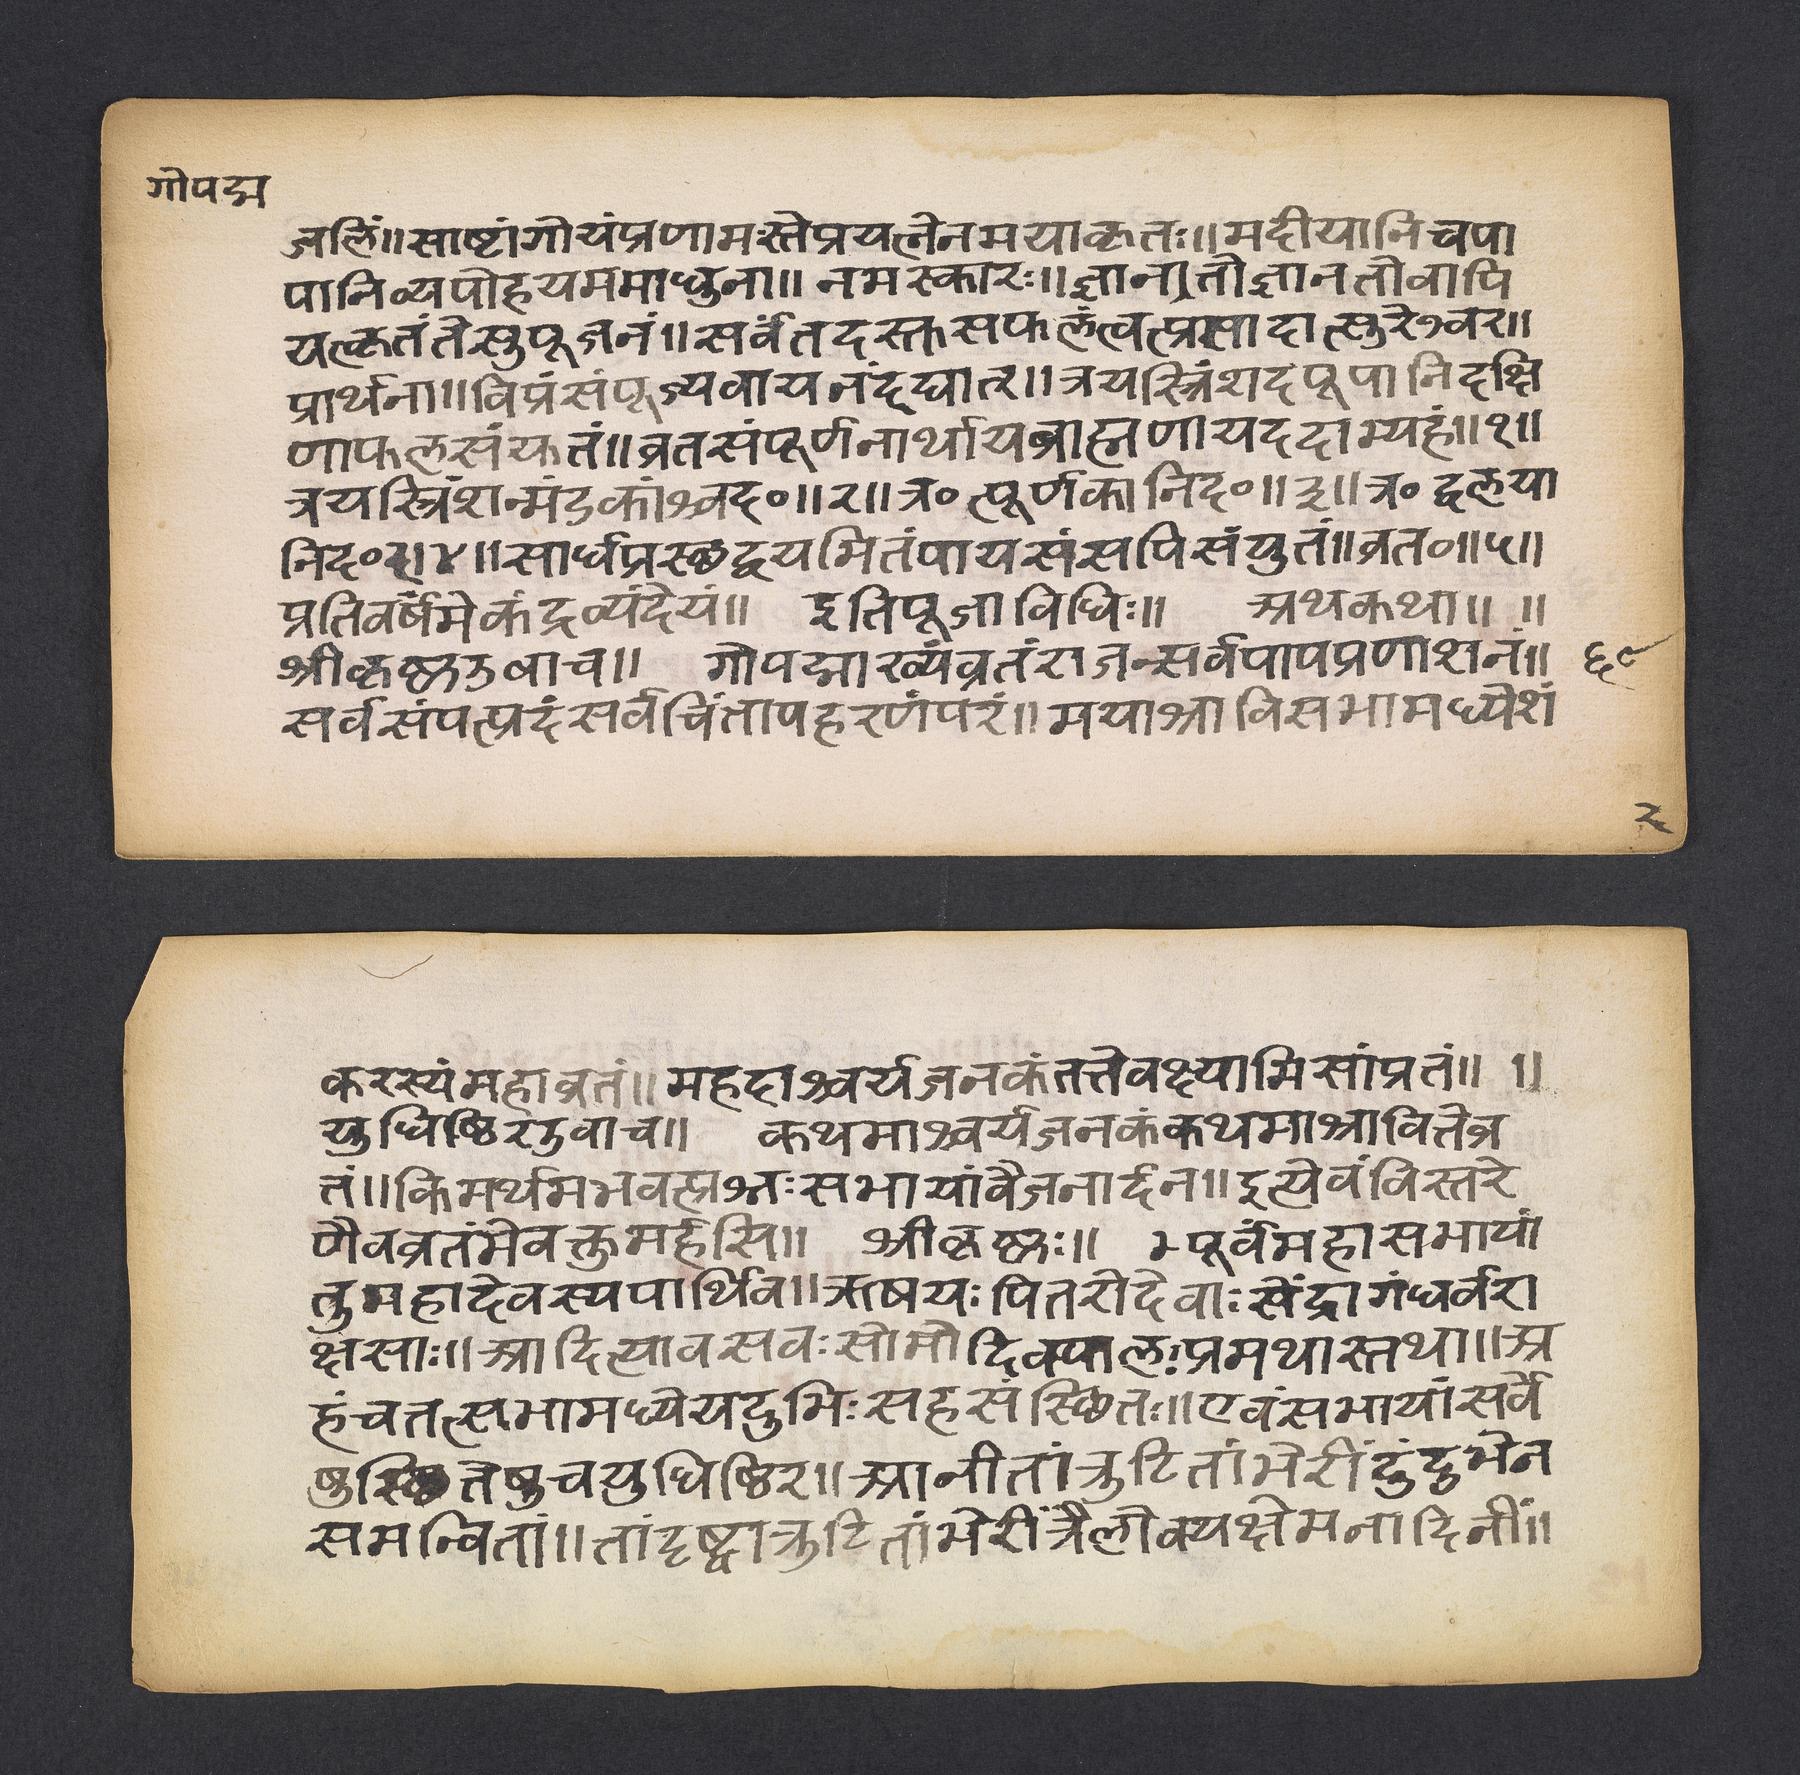 गोपद्म
जलिं॥साष्टांगोयंप्रणामस्तेप्रयत्नेनमयाकृतः॥मदीयानिचपा
पानिव्यपोहयममाधुना॥ नमस्कारः॥ज्ञानातोज्ञानतोवापि
यत्कृतंतेसुपूजनं॥सर्वंतदस्तुसफलंत्वत्प्रासादात्सुरेश्वर॥
प्रार्थना॥विप्रंसंपूज्यवायनंदद्यात्॥त्रयस्त्रिंशदपूपानिदक्षि
णाफलसंयुतं॥व्रतसंपूर्णनार्थायब्राह्मणायददाम्यहं॥१॥
त्रयस्त्रिंशन्मंडकांश्चद०॥२॥त्र०त्पूर्णकानिद०॥३॥त्र०द्वलया
निद०॥४॥सार्धप्रस्छद्वयमितंपायसंसपिसंयुतं॥व्रत०॥५॥
प्रतिवर्षमेकंद्रव्यंदेयं॥ इतिपूजाविधिः॥ अथकथा॥ ॥
श्रीकृष्णउवाच॥ गोपद्माख्यंव्रतंराजन्सर्वपापप्रणाशनं॥ ६९
सर्वसंपत्प्रदंसर्वचिंतापहरणंपरं॥मयाश्राविसभामध्येशं
२
करस्यंमहाव्रतं॥महदाश्चर्यजनकंतत्तेवक्ष्यामिसांप्रतं॥ १॥
युधिष्ठिरउवाच॥ कथमाश्चर्यजनकंकथमाश्रावितेव्र
तं॥किमर्थमभवत्प्रश्नःसभायांवैजनार्दन॥इत्येवंविस्तरे
णैवव्रतंमेवक्तुमर्हसि॥ श्रीकृष्णः॥ म्पूर्वंमहासभायां
तुमहादेवस्यपार्थिव॥ऋषयःपितरोदेवाःसेंद्रागंधर्वरा
क्षसाः॥आदित्यावसवःसोमोदिक्पालाःप्रमथास्तथा॥अ
हंचतत्सभामध्येयदुभिःसहसंस्छितः॥एवंसभायांसर्वे
षुस्छितेषुचयुधिष्ठिर॥आनीतांत्रुटितांभेरींदुंदुभेन
समन्वितां॥तांदृष्ट्वात्रुटितांभेरींत्रैलोक्यक्षेमनादिनीं॥